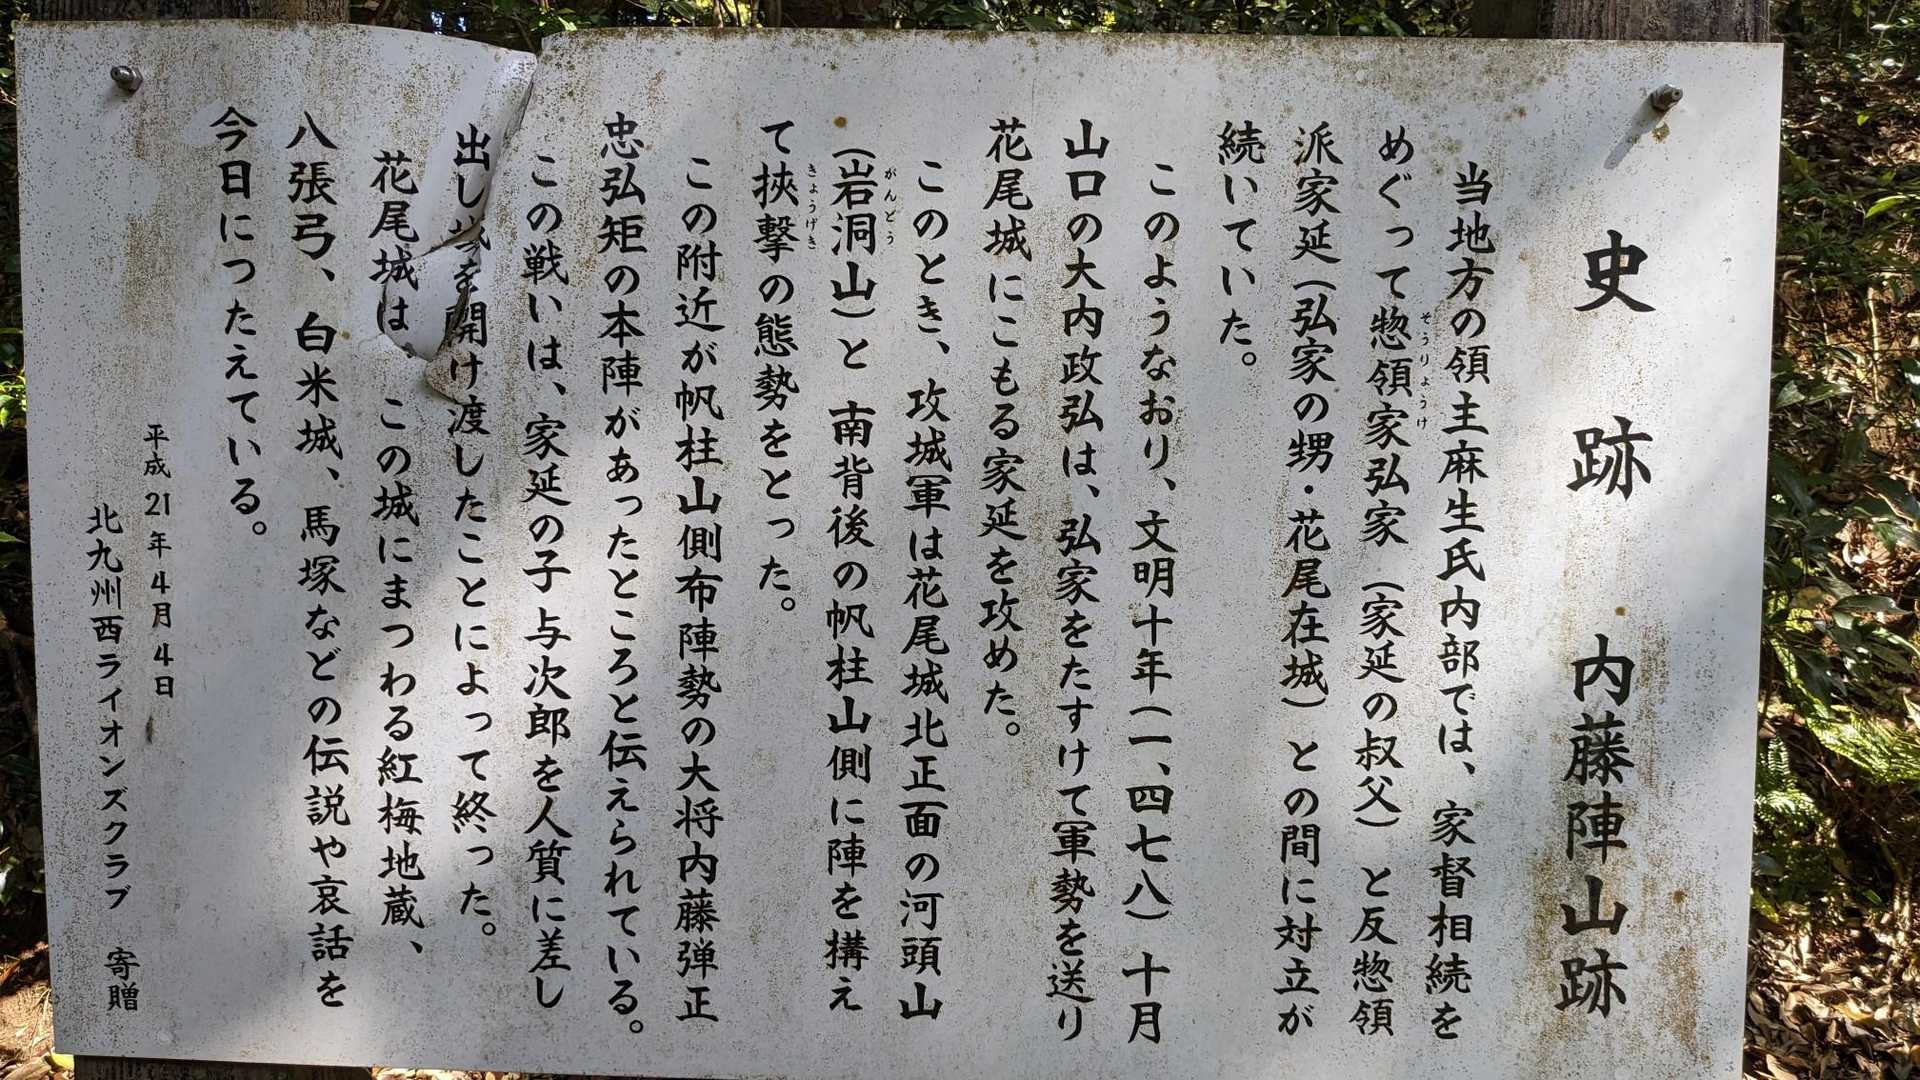 史跡　内藤陣山跡
当地方の領主麻生氏内部では、家督相続を
めぐって惣領家弘家（家延の叔父）と反惣領
そうりょうけ
派家延（弘家の甥・花尾在城）との間に対立が
続いていた。
このようなおり、文明十年（一、四七八）十月
山口の大内政弘は、弘家をたすけて軍勢を送り
花尾城にこもる家延を攻めた。
このとき、攻城軍は花尾城北正面の河頭山
（岩洞山）と南背後の帆柱山側に陣を構え
がんどう
て挾撃の態勢をとった。
きょうげき
この附近が帆柱山側布陣勢の大将内藤弾正
忠弘矩の本陣があったところと伝えられている。
この戦いは、家延の子与次郎を人質に差し
出し城を開け渡したことによって終った。
花尾城は　この城にまつわる紅梅地蔵、
八張弓、白米城、馬塚などの伝説や哀話を
今日につたえている。
平成21年4月4日
北九州西ライオンズクラブ　寄贈